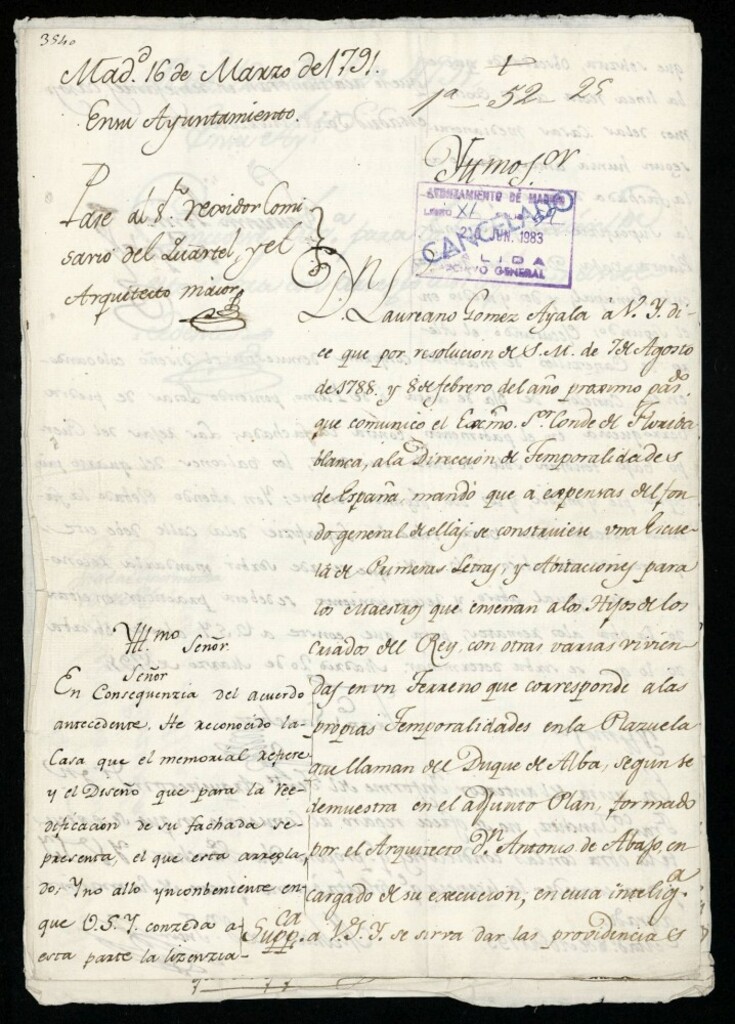 3540
Mad.ᵈ 16 de Marzo de 1791.
En su Ayuntamiento.
1ª 52 25
Pase al S.ᵒʳ rexidor Comi
sario del Quartel, y el
Arquitecto maior
Yllmo S.ᵒʳ
AYUNTAMIENTO DE MADRID
LIBRO XI
CANCELADO
JUN. 1983
SALIDA
ARCHIVO GENERAL
D.ⁿ Laureano Gomez Ayala á V. Y. di-
ce que por resolucion de S. M. de 7 de Agosto
de 1788. y 8 de febrero del año proximo pad.ᵒ
que comunicó el Exc̃mo. S.ᵒʳ Conde de Florida
blanca, a la Direccion de Temporalidades
de España, mandó que a expensas del fon
do general de ellas se construiese una Escue
la de Primeras Letras, y Abitaciones para
los Maestros que enseñan a los Hijos de los
Criados del Rey, con otras varias vivien
das en un Terreno que corresponde a las
propias Temporalidades en la Plazuela
que llaman del Duque de Alba, segun se
demuestra en el adjunto Plan, formado
por el Arquitecto D.ⁿ Antonio de Abajo, en
cargado de su execucion, en cuia intelig.ᵃ
Supp.ᶜᵃ a V.S.Y. se sirva dar las providencias
Yll.ᵐᵒ Señor
Señor
En Consequenzia del acuerdo
antecedente. He reconozido la
Casa que el memorial refiere
y el Diseño que para la ree-
dificacion de su fachada se-
presenta, el que esta arregla-
do, Y no allo ynconbeniente en
que V.S.Y. conzeda a
esta parte la lizenzia-